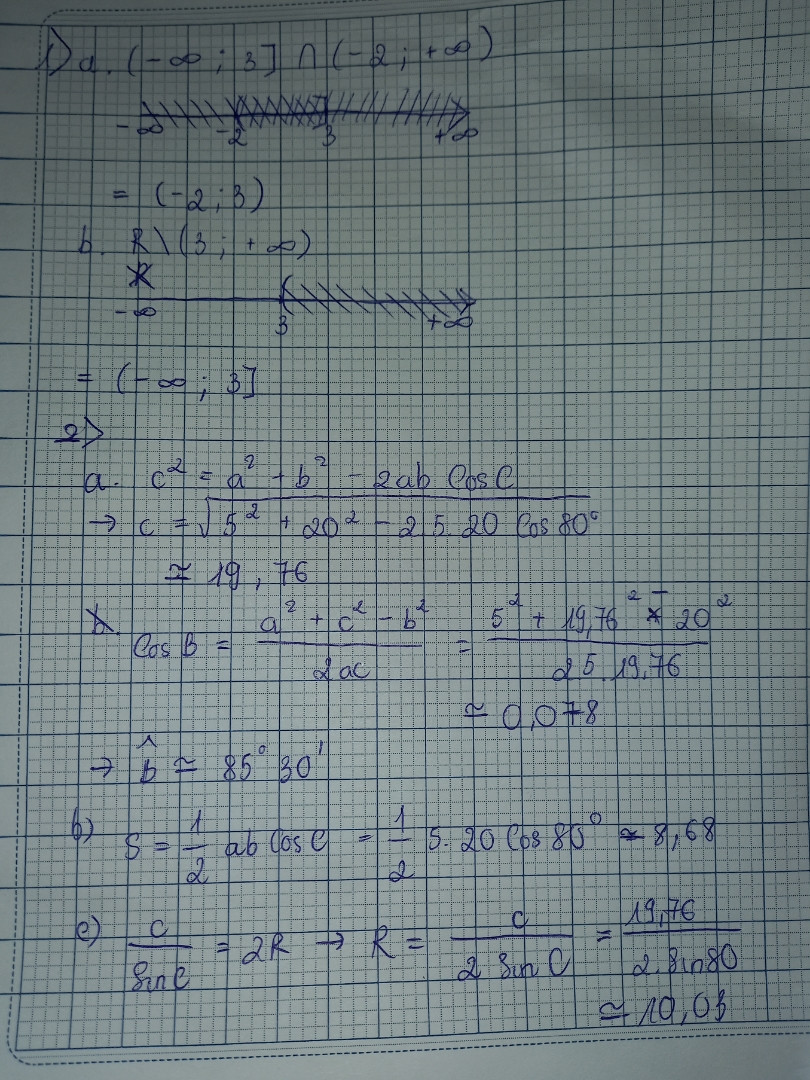 1) a. (-∞ ; 3] ∩ (-2 ; +∞)
-∞ -2 3 +∞
= (-2 ; 3)
b. R \ (3 ; +∞)
-∞ 3 +∞
= (-∞ ; 3]
2)
a. c² = a² + b² - 2ab Cos C
→ c = √(5² + 20² - 2 5. 20 Cos 80°)
≃ 19,76
Cos B = (a² + c² - b²)/(2ac) = (5² + 19,76² - 20²)/(2 5. 19,76)
≃ 0,078
→ b̂ ≃ 85° 30'
b) S = 1/2 ab Cos C = 1/2 5. 20 Cos 80° ≃ 8,68
c) c/Sin C = 2R → R = c/(2 Sin C) = 19,76/(2.Sin 80)
≃ 10,03